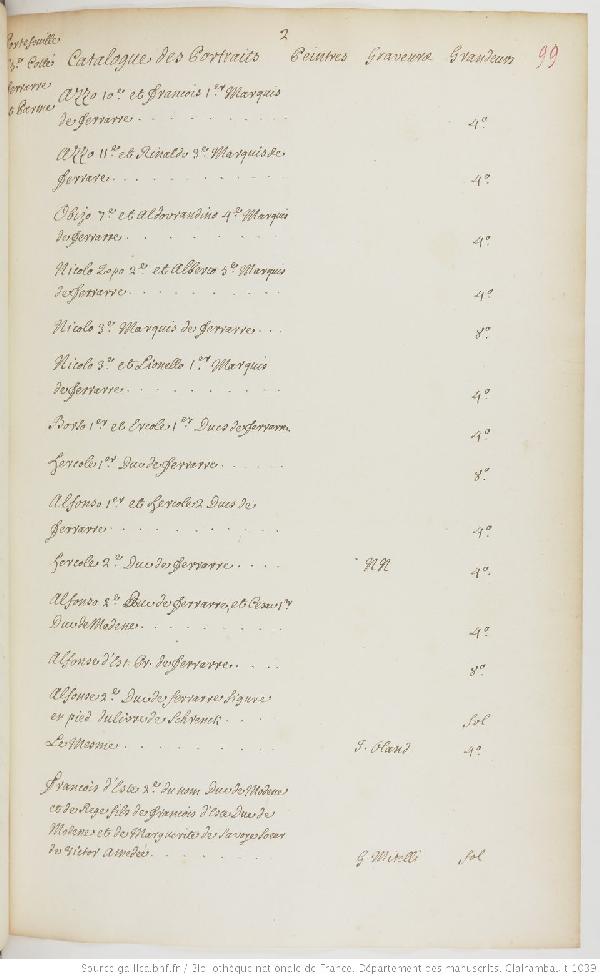 2
99
Portefeuille
Ferrarre
Parme
Catalogue des Portraits Peintres Graveure Grandeurs
Azzo 10.e et François 1.er Marquis
de Ferrarre . . . . . . . . . 4.o
Azzo 11.e et Rinaldo 3.e Marquis de
Ferrare . . . . . . . . . 4.o
Obizo 7.e et Aldovrandino 4.e Marquis
de Ferrarre . . . . . . . . . 4.o
Nicolo Zopo 2.e et Alberto 5.e Marquis
de Ferrarre . . . . . . . . . 4.o
Nicolo 3.e Marquis de Ferrarre . . . 8.o
Nicolo 3.e et Lionello 1.er Marquis
de Ferrarre . . . . . . . . . 4.o
Borso 1.er et Ercole 1.er Ducs de Ferrarre 4.o
Hercole 1.er Duc de Ferrarre . . . . 8.o
Alfonso 1.er et Hercole 2 Ducs de
Ferrarre . . . . . . . . . 4.o
Hercole 2.e Duc de Ferrarre . . . . NN 4.o
Alfonso 2.e Duc de Ferrarre, et Cesar 1.er
Duc de Modene . . . . . . . 4.o
Alfonse d'Est Pr. de Ferrarre . . . . 8.o
Alfonse 2.e Duc de Ferrarre figure
en pied du livre de Schrenck . . . . fol
Le Mesme . . . . . . . . J. Oland 4.o
François d'Este 2.e du nom Duc de Modene
et de Rege fils de François d'Este Duc de
Modene et de Marguerite de Savoye soeur
de Victor Amedée . . . . . . . G. Mitelli fol
Source gallica.bnf.fr / Bibliothèque nationale de France. Département des manuscrits. Clairambault 1039